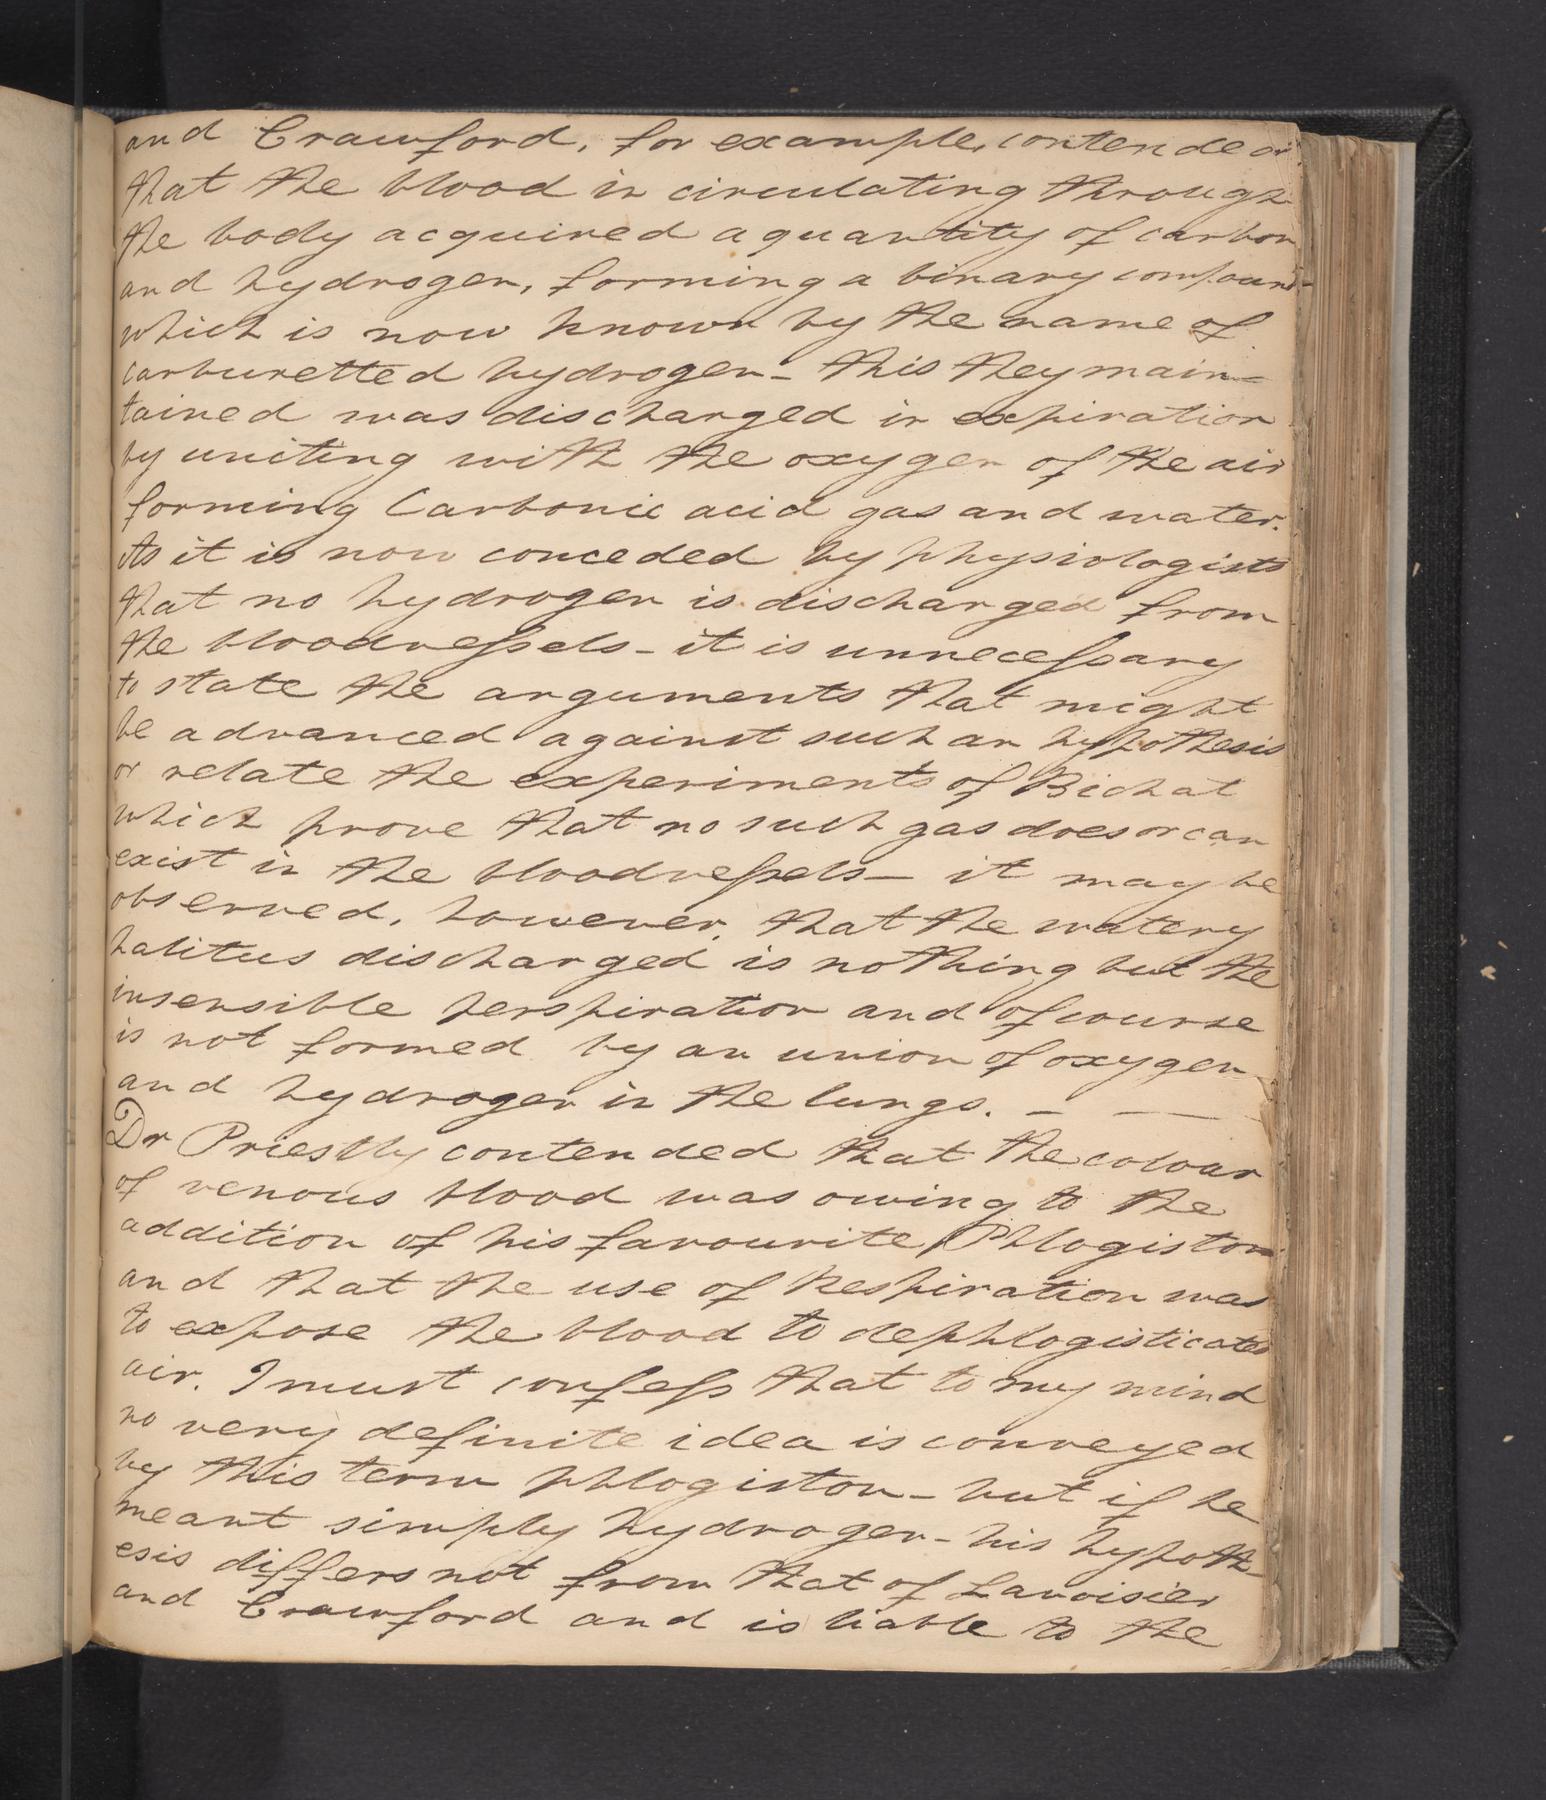 and Crawford, for example, contended
that the blood in circulating through
the body acquired a quantity of carbon
and hydrogen, forming a binary compound
which is now known by the name of
carburetted hydrogen - this they main-
tained was discharged in expiration
by uniting with the oxygen of the air
forming Carbonic acid gas and water.
As it is now conceded by physiologists
that no hydrogen is discharged from
the bloodvessels - it is unnecessary
to state the arguments that might
be advanced against such an hypothesis
or relate the experiments of Bichat
which prove that no such gas does or can
exist in the bloodvessels - it may be
observed, however, that the watery
halitus discharged is nothing but the
insensible perspiration and of course
is not formed by an union of oxygen
and hydrogen in the lungs. - -
Dr Priestly contended that the colour
of venous blood was owing to the
addition of his favourite Phlogiston
and that the use of Respiration was
to expose the blood to dephlogisticated
air. I must confess that to my mind
no very definite idea is conveyed
by this term phlogiston - but if he
meant simply hydrogen - his hypoth-
esis differs not from that of Lavoisier
and Crawford and is liable to the